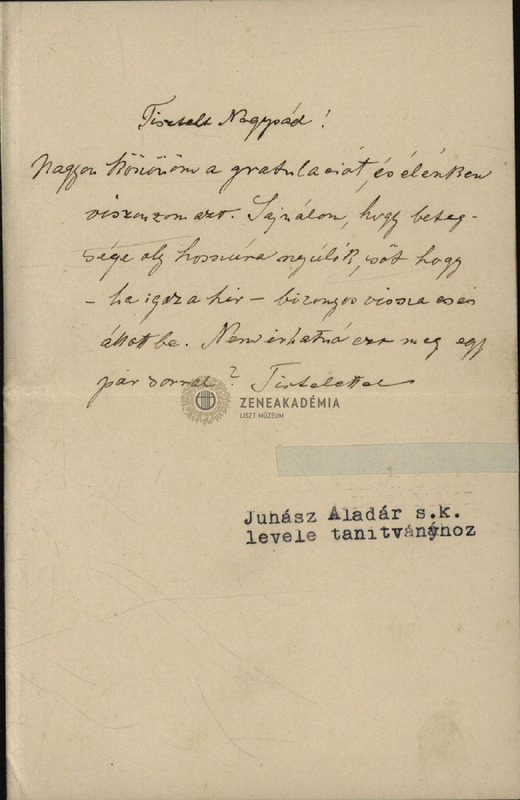 Tisztelt Nagysád!
Nagyon köszönöm a gratulaciót, és élénken
viszonzom azt. Sajnálom, hogy beteg-
sége oly hosszúra nyúlik, sőt hogy
– ha igaz a hir – bizonyos vissza esés
állott be. Nem irhatná ezt meg egy
pár sorral? Tisztelettel
ZENEAKADÉMIA
LISZT MÚZEUM
Juhász Aladár s.k.
levele tanítványhoz